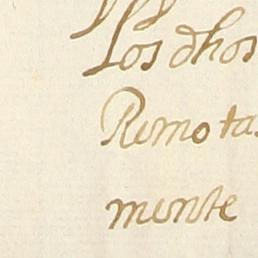 Los dhos
Remota
mente